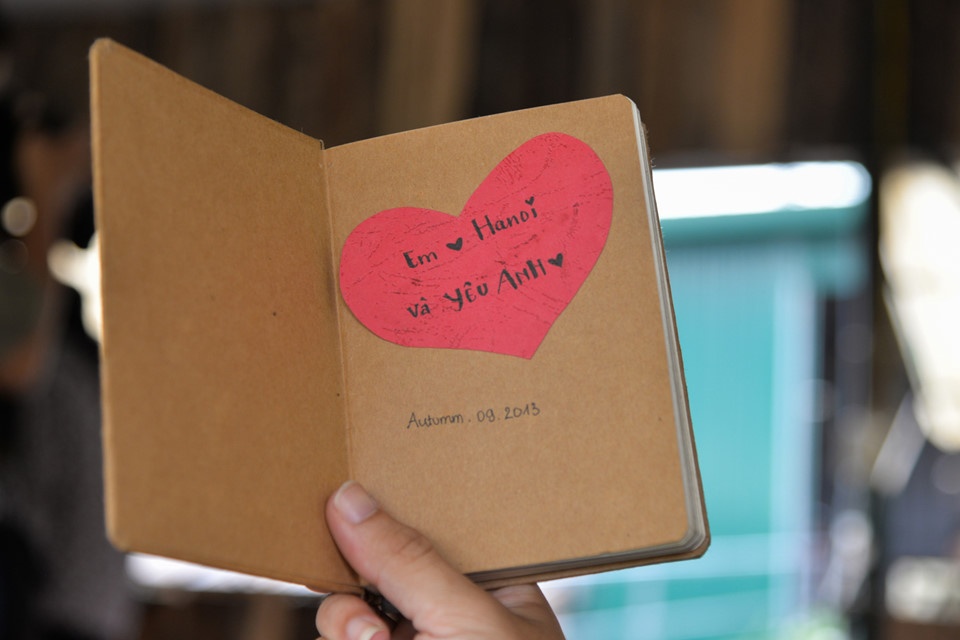 Em ♥ Hanoi
và yêu ANH ♥
Autumm . 09 . 2013